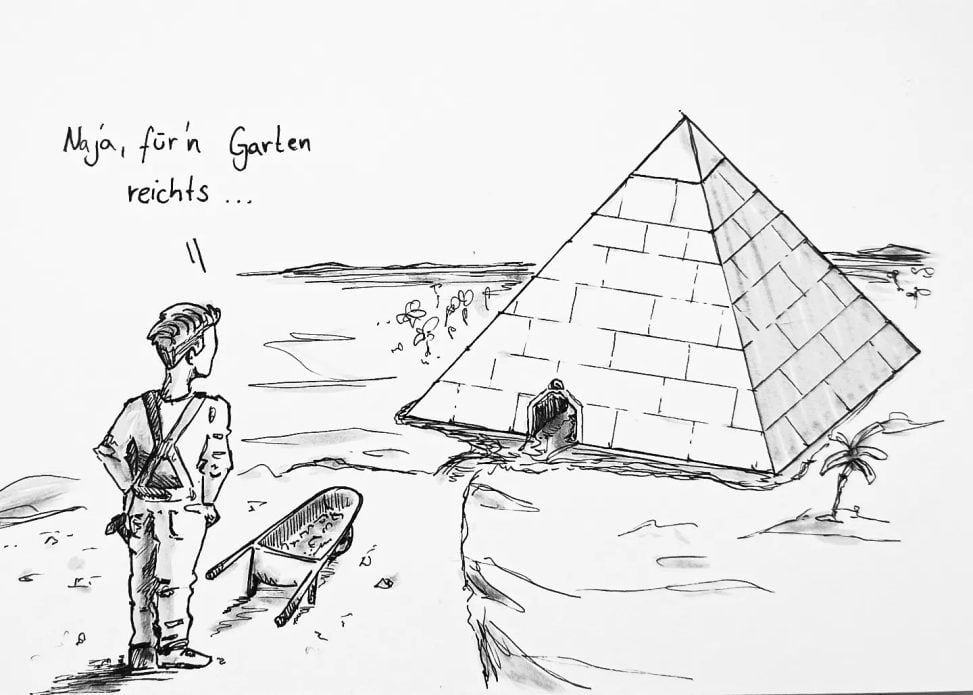 Naja, für'n Garten
reichts ...